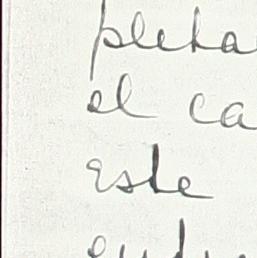 pleta
el ca
este